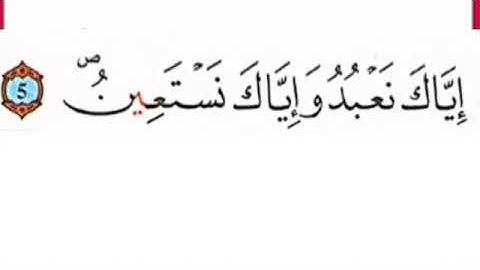 إِيَّاكَ نَعْبُدُ وَإِيَّاكَ نَسْتَعِينُ ۖ 5